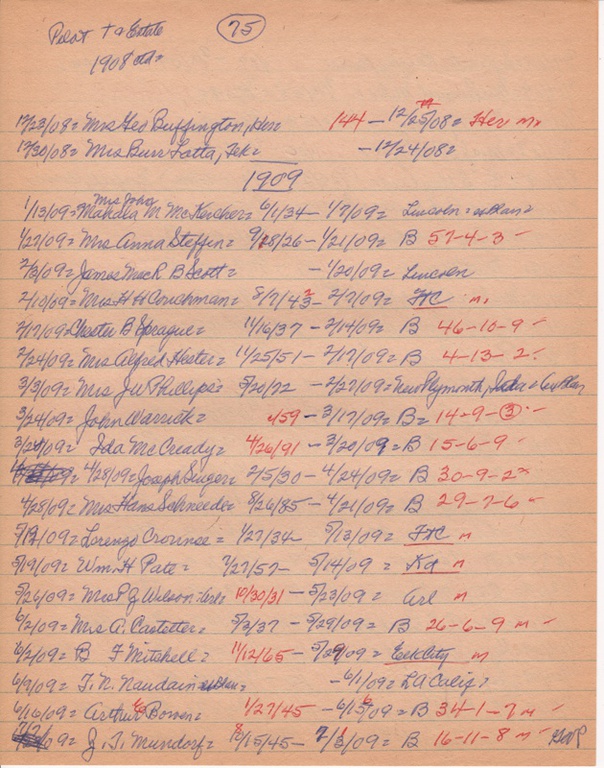 Pilot + a Estate 75
1908 ctd=
12/23/08= Mrs Geo Buffington, Her= 144 – 12/25/08= Her mx
12/30/08= Mrs Burr Latta, Tek= – 12/24/08=
1909
Mrs John
1/13/09= Mahala M. McKercher= 6/1/34 – 1/7/09= Lincoln =
1/27/09= Mrs Anna Steffin= 9/28/26 – 1/21/09= B 57-4-3 –
2/3/09= James MacR B Scott= – 1/20/09= Lincoln
2/10/09= Mrs H H Couchman= 8/7/43 – 2/7/09= FHC m.
2/17/09= Chester B Sprague= 11/16/37 – 2/14/09= B 46-10-9 –
2/24/09= Mrs Alfred Hester= 11/25/51 – 2/17/09= B 4-13-2 –
3/3/09= Mrs JW Phillips= 5/20/72 – 2/27/09= New Plymouth, Ida=
3/24/09= John Warrick= 59 – 3/17/09= B= 14-9-3 –
3/24/09= Ida McCready= 4/26/91 – 3/20/09= B 15-6-9 –
4/28/09= Joseph Suiger= 2/5/30 – 4/24/09= B 30-9-2x
4/28/09= Mrs Hans Schneeder= 8/26/85 – 4/21/09= B 29-7-6 –
5/19/09= Lorenzo Crounse= 1/27/34 – 5/13/09= FHC m
5/19/09= Wm. H Pate= 7/27/57 – 5/14/09= Ka m
5/26/09= Mrs P J Wilson= Arl= 10/30/31 – 5/23/09= Arl m
6/2/09= Mrs A. Castetter= 5/3/37 – 5/29/09= B 26-6-9 m –
6/2/09= B F Mitchell= 11/12/65 – 5/29/09= Elk City m
6/9/09= T. R. Naudain – 6/1/09= LA Calif=
6/16/09= Arthur E Bowen= 1/27/45 – 6/15/09= B 34-1-7 m –
/09= J. T. Mundorf= 8/15/45 – 7/1/09= B 16-11-8 m –